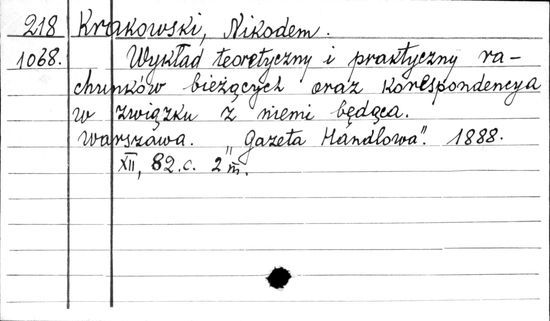 218 Krakowski, Nikodem.
1068. Wykład teoretyczny i praktyczny ra-
chunków bieżących oraz korespondencya
w związku z niemi będąca.
Warszawa. „Gazeta Handlowa". 1888.
XII, 82.c. 2 m.